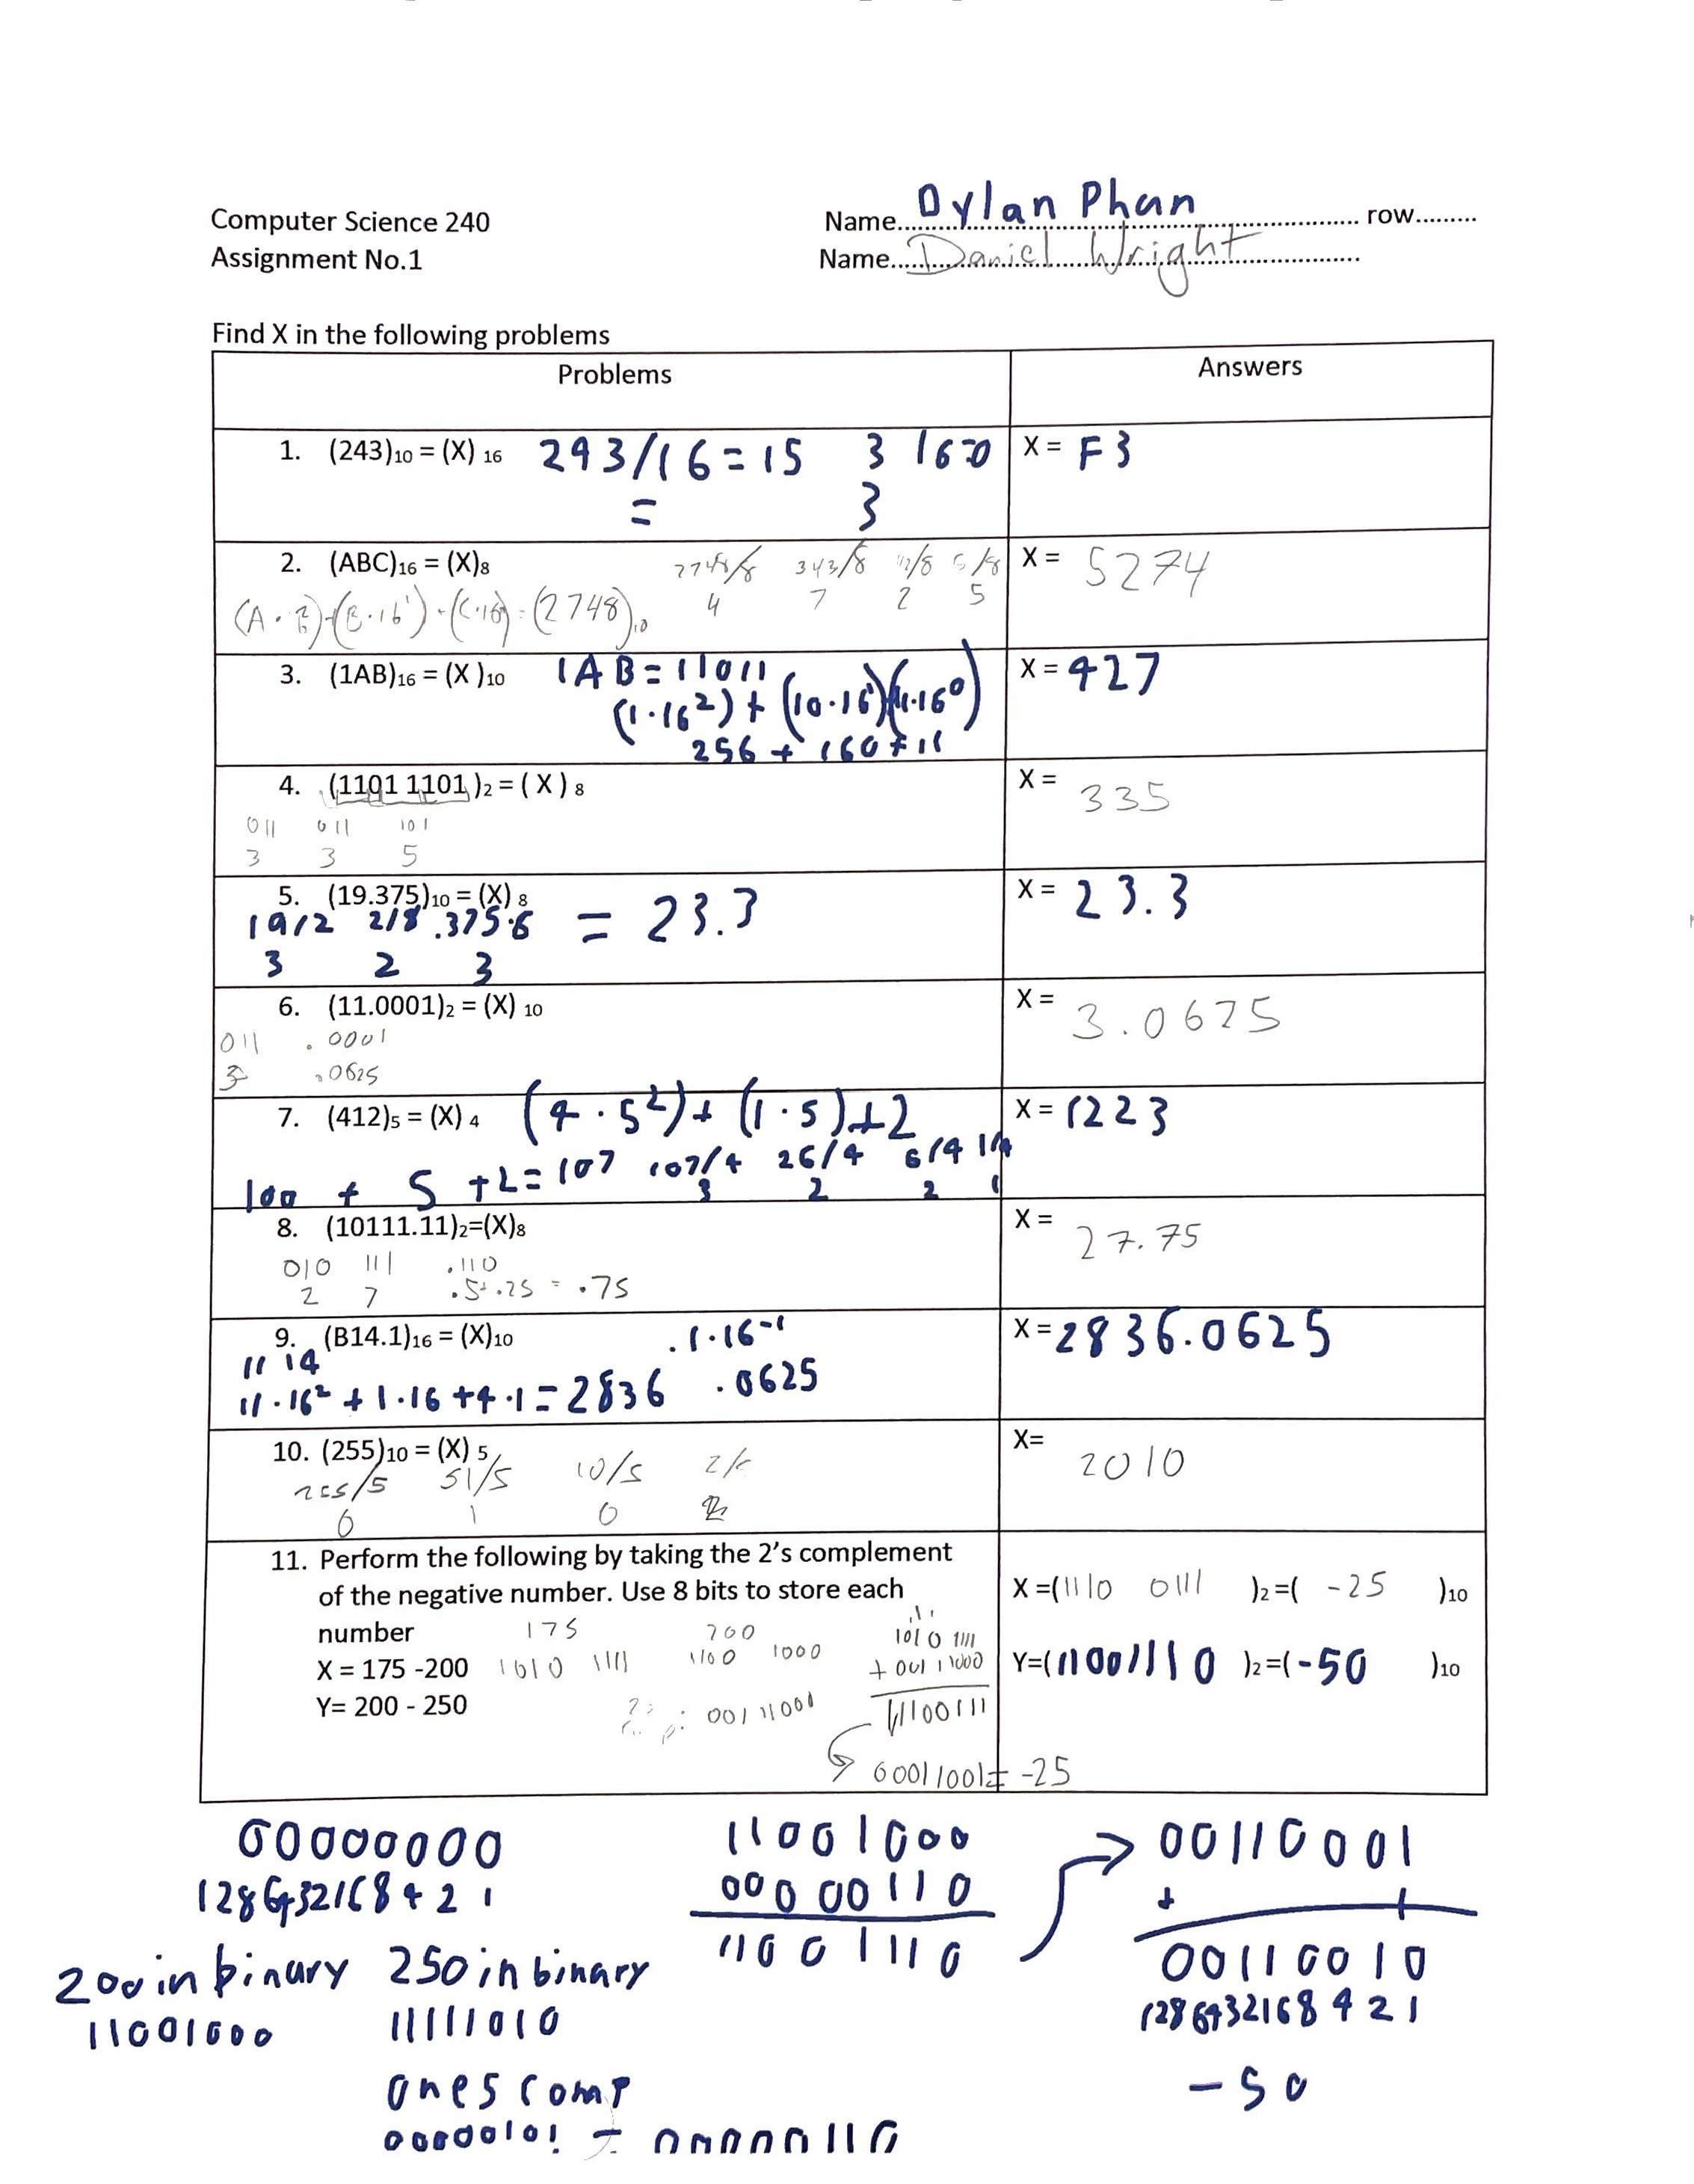 Computer Science 240
Assignment No.1
Name Dylan Phan row
Name Daniel Wright
Find X in the following problems
Problems
Answers
1. (243)10 = (X) 16 243/16 = 15 3 16=0
= 3
X = F3
2. (ABC)16 = (X)8 2748/8 343/8 42/8 5/8
4 7 2 5
(2748)10
X = 5274
3. (1AB)16 = (X )10 1AB = 11011
(1·16²) + (10·16)(11·16⁰)
256 + 160 + 11
X = 427
4. (1101 1101 )2 = ( X ) 8
011 011 101
3 3 5
X = 335
5. (19.375)10 = (X) 8
19/2 2/8 .375·8 = 23.3
3 2 3
X = 23.3
6. (11.0001)2 = (X) 10
011 . 0001
3 .0625
X = 3.0625
7. (412)5 = (X) 4 (4·5²) + (1·5) + 2
100 + 5 + 2 = 107 107/4 26/4 6/4 1/4
3 2 2 1
X = 1223
8. (10111.11)2=(X)8
010 111 .110
2 7 .5+.25 = .75
X = 27.75
9. (B14.1)16 = (X)10 .1·16⁻¹
11 14
11·16² + 1·16 + 4·1 = 2836 .0625
X = 2836.0625
10. (255)10 = (X) 5
255/5 51/5 10/5
0 1 0 2
X= 2010
11. Perform the following by taking the 2's complement
of the negative number. Use 8 bits to store each
number
X = 175 -200
Y= 200 - 250
175 200
1010 1111 1100 1000
00111000
1010 1111
+ 00111000
11100111
00011001 = -25
X =(1110 0111 )2 =( -25 )10
Y=(11001110 )2 =( -50 )10
00000000
128 64 32 16 8 4 2 1
200 in binary
11001000
250 in binary
11111010
ones comp
00000101 = 00000110
11001000
00000110
11001110
00110001
+ 1
00110010
128 64 32 16 8 4 2 1
-50